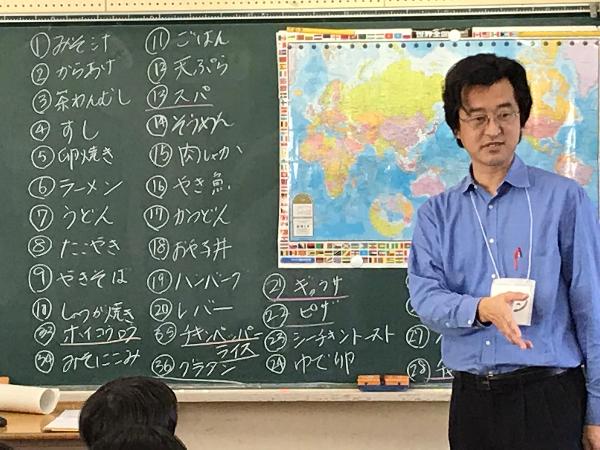 ① みそ汁
② からあげ
③ 茶わんむし
④ すし
⑤ 卵焼き
⑥ ラーメン
⑦ うどん
⑧ たこやき
⑨ やきそば
⑩ しょうが焼き
㉝ ホイコウロウ
㉞ みそにこみ
⑪ ごはん
⑫ 天ぷら
⑬ スパ
⑭ そうめん
⑮ 肉じゃが
⑯ やき魚
⑰ かつどん
⑱ おや子丼
⑲ ハンバーク
⑳ レバー
㉟ チキンペッパー
ライス
㊱ グラタン
㉑ ギョウザ
㉒ ピザ
㉓ シーチキントースト
㉔ ゆで卵
㉗
㉘
世界全図